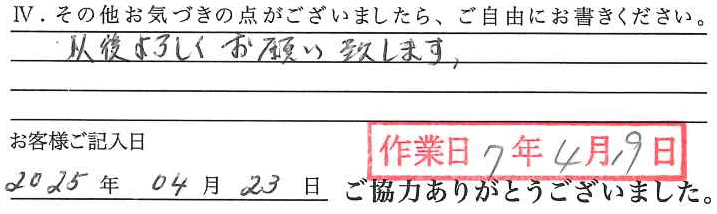 Ⅳ.その他お気づきの点がございましたら、ご自由にお書きください。
以後よろしくお願い致します,
お客様ご記入日
作業日 7年4月19日
2025年 04月 23日 ご協力ありがとうございました。